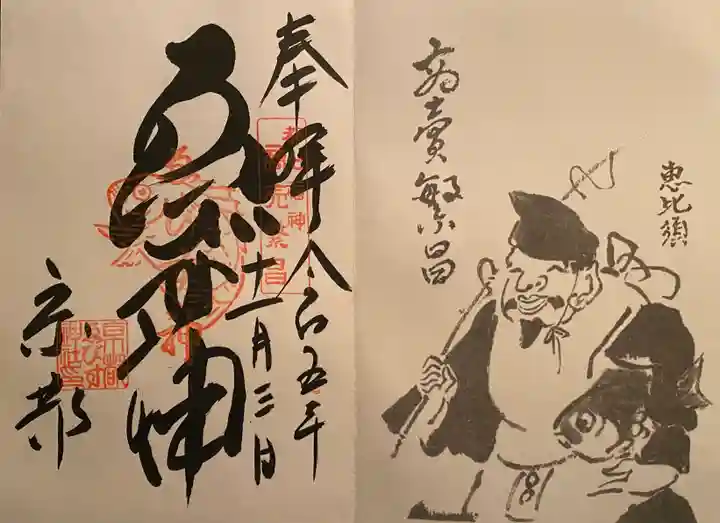 恵比須
商賣繁昌
奉拝 令和五年
十一月三日
ゑびす神
京都